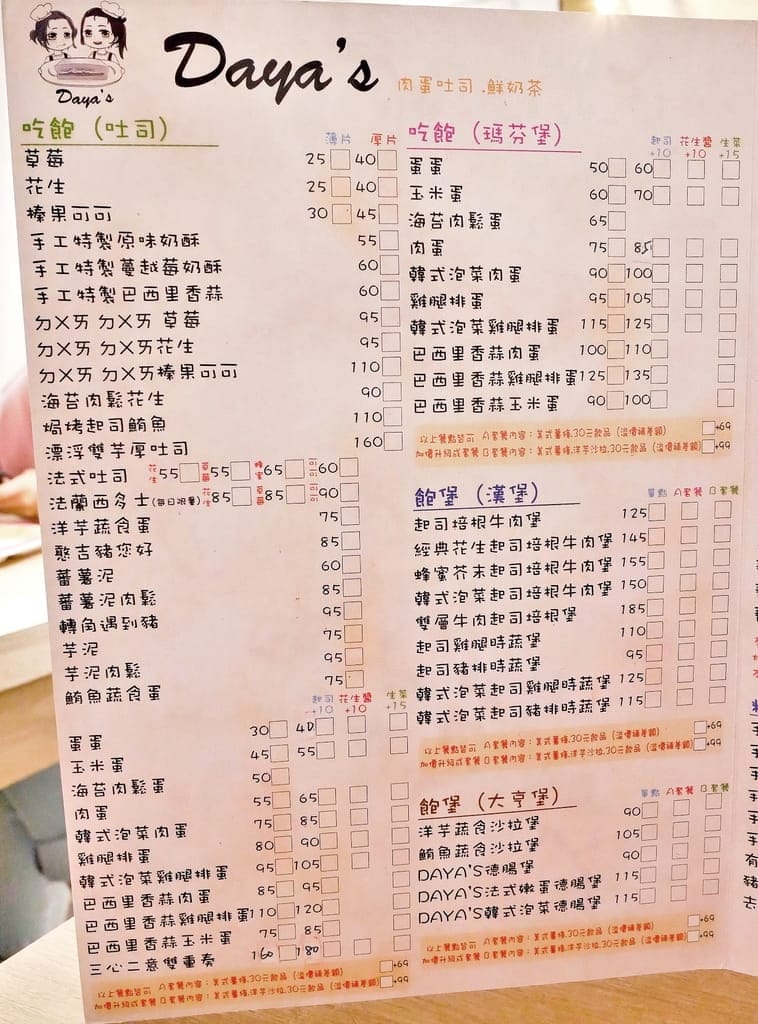 Daya's
Daya's
肉蛋吐司 . 鮮奶茶
吃飽（吐司）
薄片 厚片
草莓 25 40
花生 25 40
榛果可可 30 45
手工特製原味奶酥 55
手工特製蔓越莓奶酥 60
手工特製巴西里香蒜 60
ㄉㄨㄞ ㄉㄨㄞ 草莓 95
ㄉㄨㄞ ㄉㄨㄞ花生 95
ㄉㄨㄞ ㄉㄨㄞ榛果可可 110
海苔肉鬆花生 90
焗烤起司鮪魚 110
漂浮雙芋厚吐司 160
法式吐司 花生55 草莓55 蜂蜜65 可可60
法蘭西多士(每日限量) 花生85 草莓85 可可90
洋芋蔬食蛋 75
憨吉豬您好 85
蕃薯泥 60
蕃薯泥肉鬆 85
轉角遇到豬 95
芋泥 75
芋泥肉鬆 95
鮪魚蔬食蛋 75
起司+10 花生醬+10 生菜+15
蛋蛋 30 40
玉米蛋 45 55
海苔肉鬆蛋 50
肉蛋 55 65
韓式泡菜肉蛋 75 85
雞腿排蛋 80 90
韓式泡菜雞腿排蛋 95 105
巴西里香蒜肉蛋 85 95
巴西里香蒜雞腿排蛋 110 120
巴西里香蒜玉米蛋 75 85
三心二意雙重奏 160 180
以上餐點皆可 A套餐內容：美式薯條.30元飲品（溢價補差額） +69
加價升級成套餐 B套餐內容：美式薯條.洋芋沙拉.30元飲品（溢價補差額） +99
吃飽（瑪芬堡）
起司+10 花生醬+10 生菜+15
蛋蛋 50 60
玉米蛋 60 70
海苔肉鬆蛋 65
肉蛋 75 85
韓式泡菜肉蛋 90 100
雞腿排蛋 95 105
韓式泡菜雞腿排蛋 115 125
巴西里香蒜肉蛋 100 110
巴西里香蒜雞腿排蛋 125 135
巴西里香蒜玉米蛋 90 100
以上餐點皆可 A套餐內容：美式薯條.30元飲品（溢價補差額） +69
加價升級成套餐 B套餐內容：美式薯條.洋芋沙拉.30元飲品（溢價補差額） +99
飽堡（漢堡）
單點 A套餐 B套餐
起司培根牛肉堡 125
經典花生起司培根牛肉堡 145
蜂蜜芥末起司培根牛肉堡 155
韓式泡菜起司培根牛肉堡 150
雙層牛肉起司培根堡 185
起司雞腿時蔬堡 110
起司豬排時蔬堡 95
韓式泡菜起司雞腿時蔬堡 125
韓式泡菜起司豬排時蔬堡 115
以上餐點皆可 A套餐內容：美式薯條.30元飲品（溢價補差額） +69
加價升級成套餐 B套餐內容：美式薯條.洋芋沙拉.30元飲品（溢價補差額） +99
飽堡（大亨堡）
單點 A套餐 B套餐
洋芋蔬食沙拉堡 90
鮪魚蔬食沙拉堡 105
DAYA'S德腸堡 90
DAYA'S法式嫩蛋德腸堡 115
DAYA'S韓式泡菜德腸堡 115
以上餐點皆可 A套餐內容：美式薯條.30元飲品（溢價補差額） +69
加價升級成套餐 B套餐內容：美式薯條.洋芋沙拉.30元飲品（溢價補差額） +99